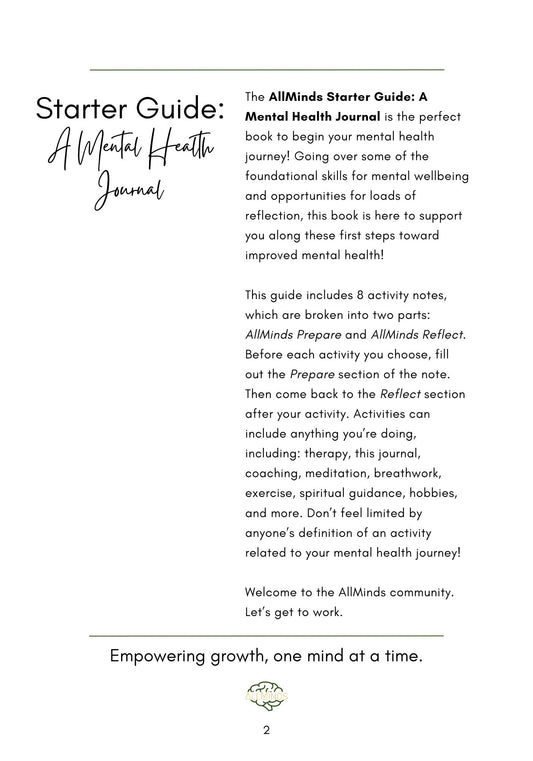 Starter Guide:
A Mental Health
Journal
The AllMinds Starter Guide: A
Mental Health Journal is the perfect
book to begin your mental health
journey! Going over some of the
foundational skills for mental wellbeing
and opportunities for loads of
reflection, this book is here to support
you along these first steps toward
improved mental health!
This guide includes 8 activity notes,
which are broken into two parts:
AllMinds Prepare and AllMinds Reflect.
Before each activity you choose, fill
out the Prepare section of the note.
Then come back to the Reflect section
after your activity. Activities can
include anything you’re doing,
including: therapy, this journal,
coaching, meditation, breathwork,
exercise, spiritual guidance, hobbies,
and more. Don’t feel limited by
anyone’s definition of an activity
related to your mental health journey!
Welcome to the AllMinds community.
Let’s get to work.
Empowering growth, one mind at a time.
ALLMINDS
2